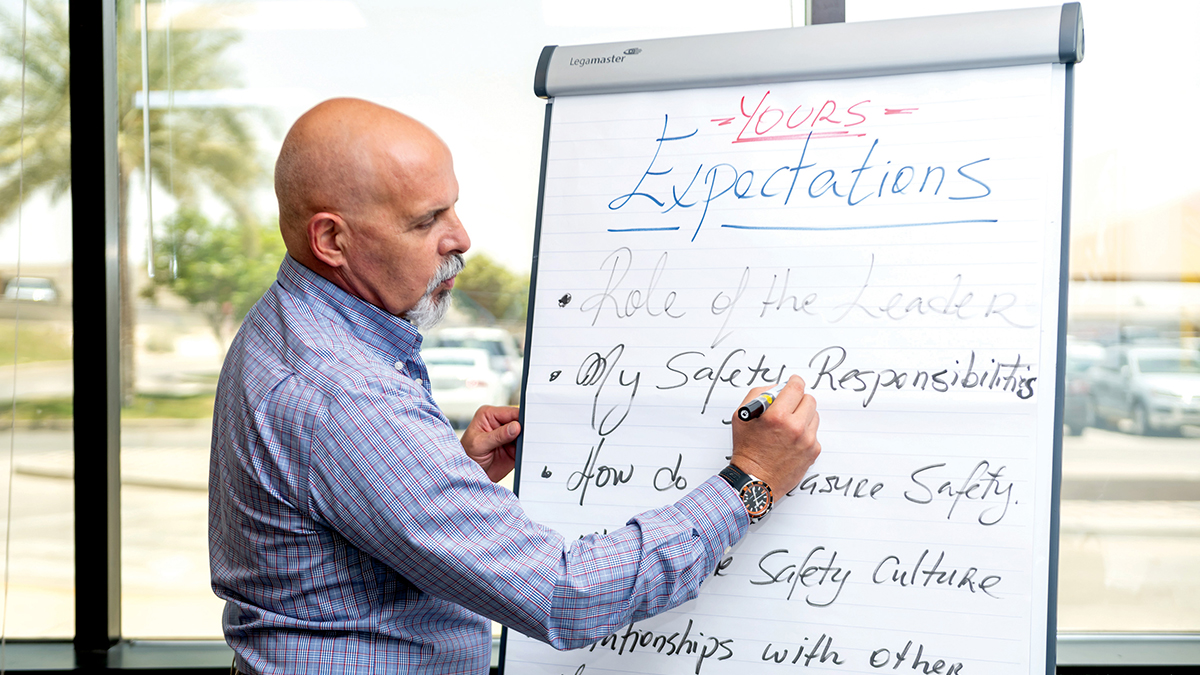 Legamaster
= YOURS =
Expectations
• Role of the Leader
• My Safety Responsibilities
• How do Safety.
Safety Culture
with other